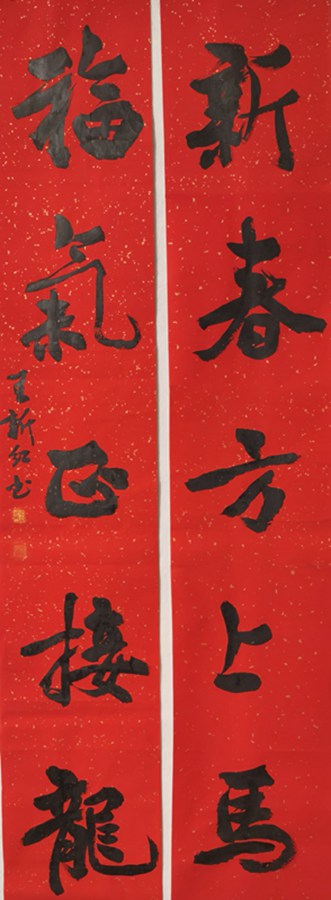 新春方上馬
福氣正接龍
王新红书